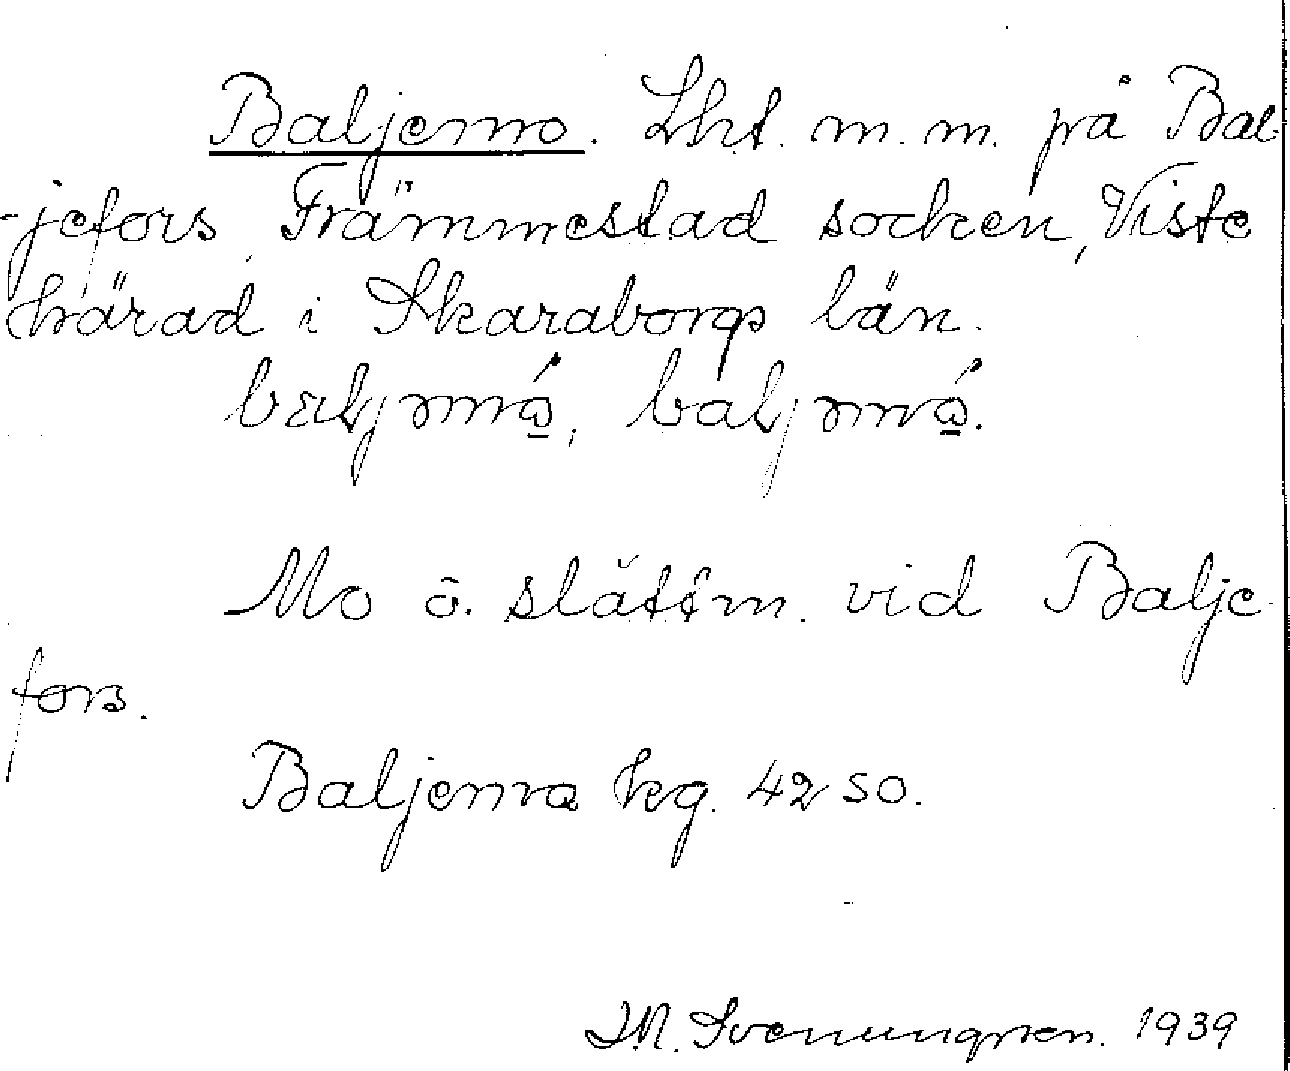 Baljemo. Lht. m.m. på Bal-
-jefors, Främmestad socken, Viste
härad i Skaraborgs län.
Mo o. slåttm. vid Balje-
fors.
Baljemo hg. 42 SO.
J.M. Svenungsson. 1939